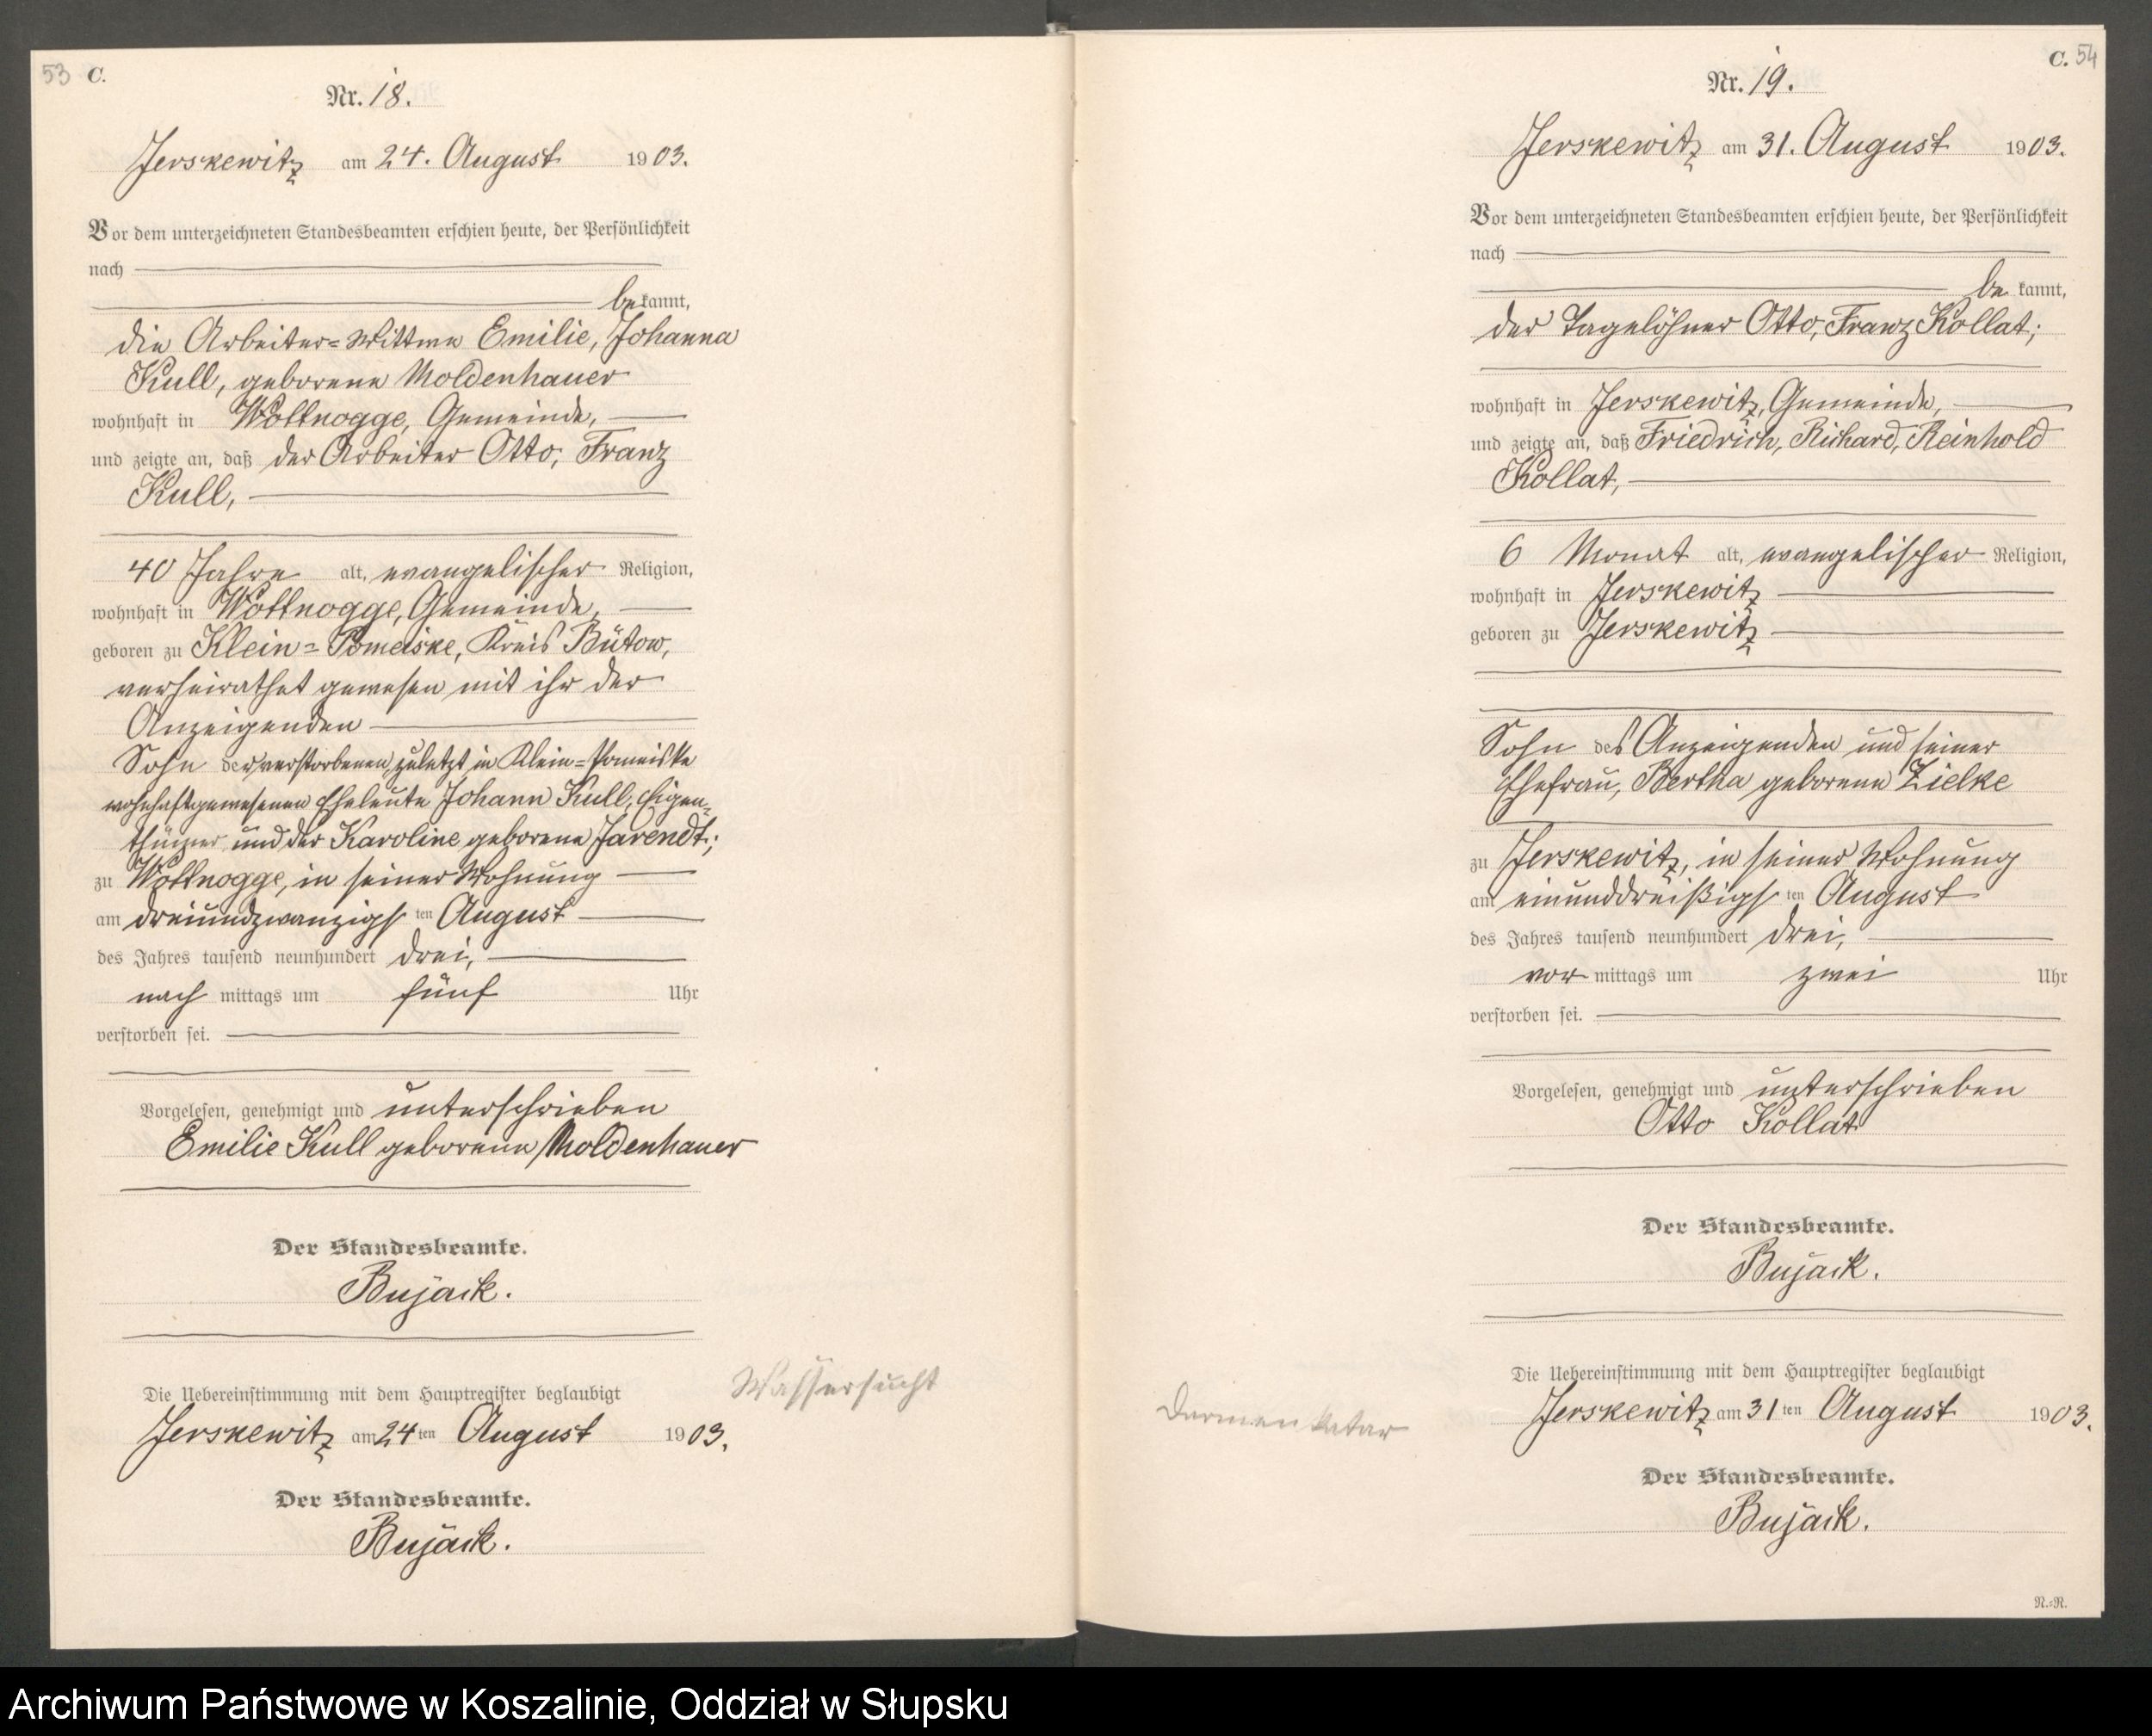 53 C.
Nr. 18.
Jerskewitz am 24. August 1903.
Vor dem unterzeichneten Standesbeamten erschien heute, der Persönlichkeit
nach
bekannt,
die Arbeiter=Wittwe Emilie, Johanna
Kull, geborene Moldenhauer
wohnhaft in Wottnogge, Gemeinde,
und zeigte an, daß der Arbeiter Otto, Franz
Kull,
40 Jahre alt, evangelischer Religion,
wohnhaft in Wottnogge, Gemeinde,
geboren zu Klein=Pomeiske, Kreis Bütow,
verheirathet gewesen mit ihr der
Anzeigenden
Sohn der verstorbenen, zuletzt in Klein=Pomeiske
wohnhaftgewesenen Eheleute Johann Kull, Eigen=
thümer und der Karoline geborene Jarendt;
zu Wottnogge, in seiner Wohnung
am dreiundzwanzigsten August
des Jahres tausend neunhundert drei,
nachmittags um fünf Uhr
verstorben sei.
Vorgelesen, genehmigt und unterschrieben
Emilie Kull geborene Moldenhauer
Der Standesbeamte.
Bujack.
Die Uebereinstimmung mit dem Hauptregister beglaubigt
Jerskewitz am 24ten August 1903.
Der Standesbeamte.
Bujack.
Wassersucht
C. 54
Nr. 19.
Jerskewitz am 31. August 1903.
Vor dem unterzeichneten Standesbeamten erschien heute, der Persönlichkeit
nach
bekannt,
der Tagelöhner Otto, Franz Kollat;
wohnhaft in Jerskewitz, Gemeinde,
und zeigte an, daß Friedrich, Richard, Reinhold
Kollat,
6 Monat alt, evangelischer Religion,
wohnhaft in Jerskewitz
geboren zu Jerskewitz
Sohn des Anzeigenden und seiner
Ehefrau, Bertha geborene Zielke
zu Jerskewitz, in seiner Wohnung
am einunddreißigsten August
des Jahres tausend neunhundert drei,
vormittags um zwei Uhr
verstorben sei.
Vorgelesen, genehmigt und unterschrieben
Otto Kollat
Der Standesbeamte.
Bujack.
Die Uebereinstimmung mit dem Hauptregister beglaubigt
Jerskewitz am 31ten August 1903.
Der Standesbeamte.
Bujack.
Darmenkatar
N.=R.
Archiwum Państwowe w Koszalinie, Oddział w Słupsku